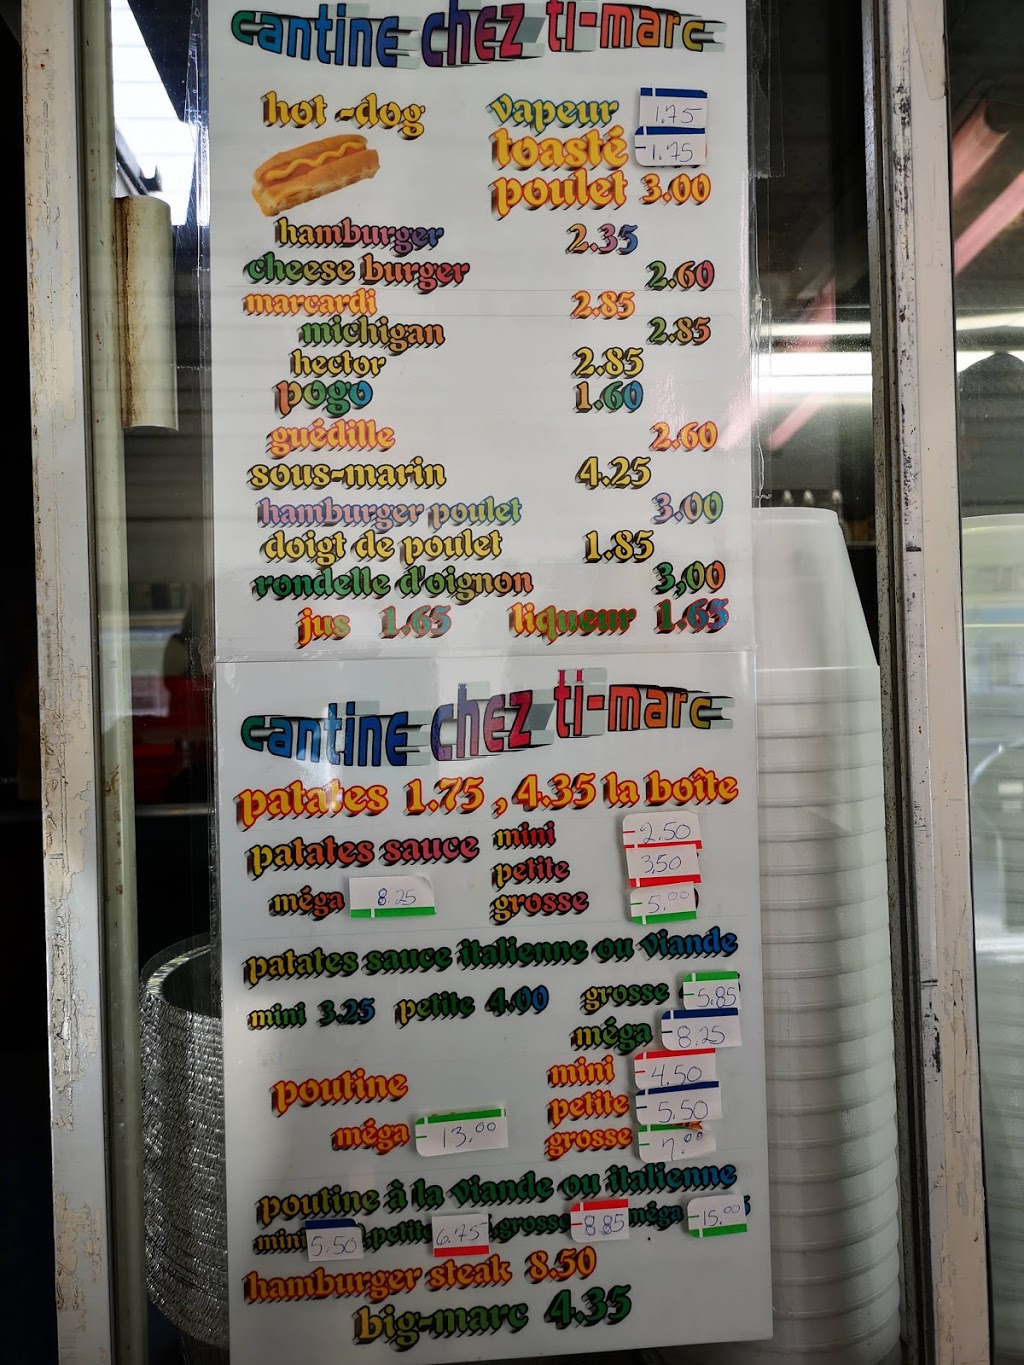 cantine chez ti-marc
hot-dog vapeur 1.75
toasté 1.75
poulet 3.00
hamburger 2.35
cheese burger 2.60
marcardi 2.85
michigan 2.85
hector 2.85
pogo 1.60
guédille 2.60
sous-marin 4.25
hamburger poulet 3.00
doigt de poulet 1.85
rondelle d'oignon 3,00
jus 1.65 liqueur 1.65
cantine chez ti-marc
patates 1.75 , 4.35 la boîte
patates sauce mini 2.50
petite 3.50
méga 8.25 grosse 5.00
patates sauce italienne ou viande
mini 3.25 petite 4.00 grosse 5.85
méga 8.25
poutine mini 4.50
petite 5.50
méga 13.00 grosse 7.00
poutine à la viande ou italienne
mini 5.50 petite 6.75 grosse 8.85 méga 15.00
hamburger steak 8.50
big-marc 4.35